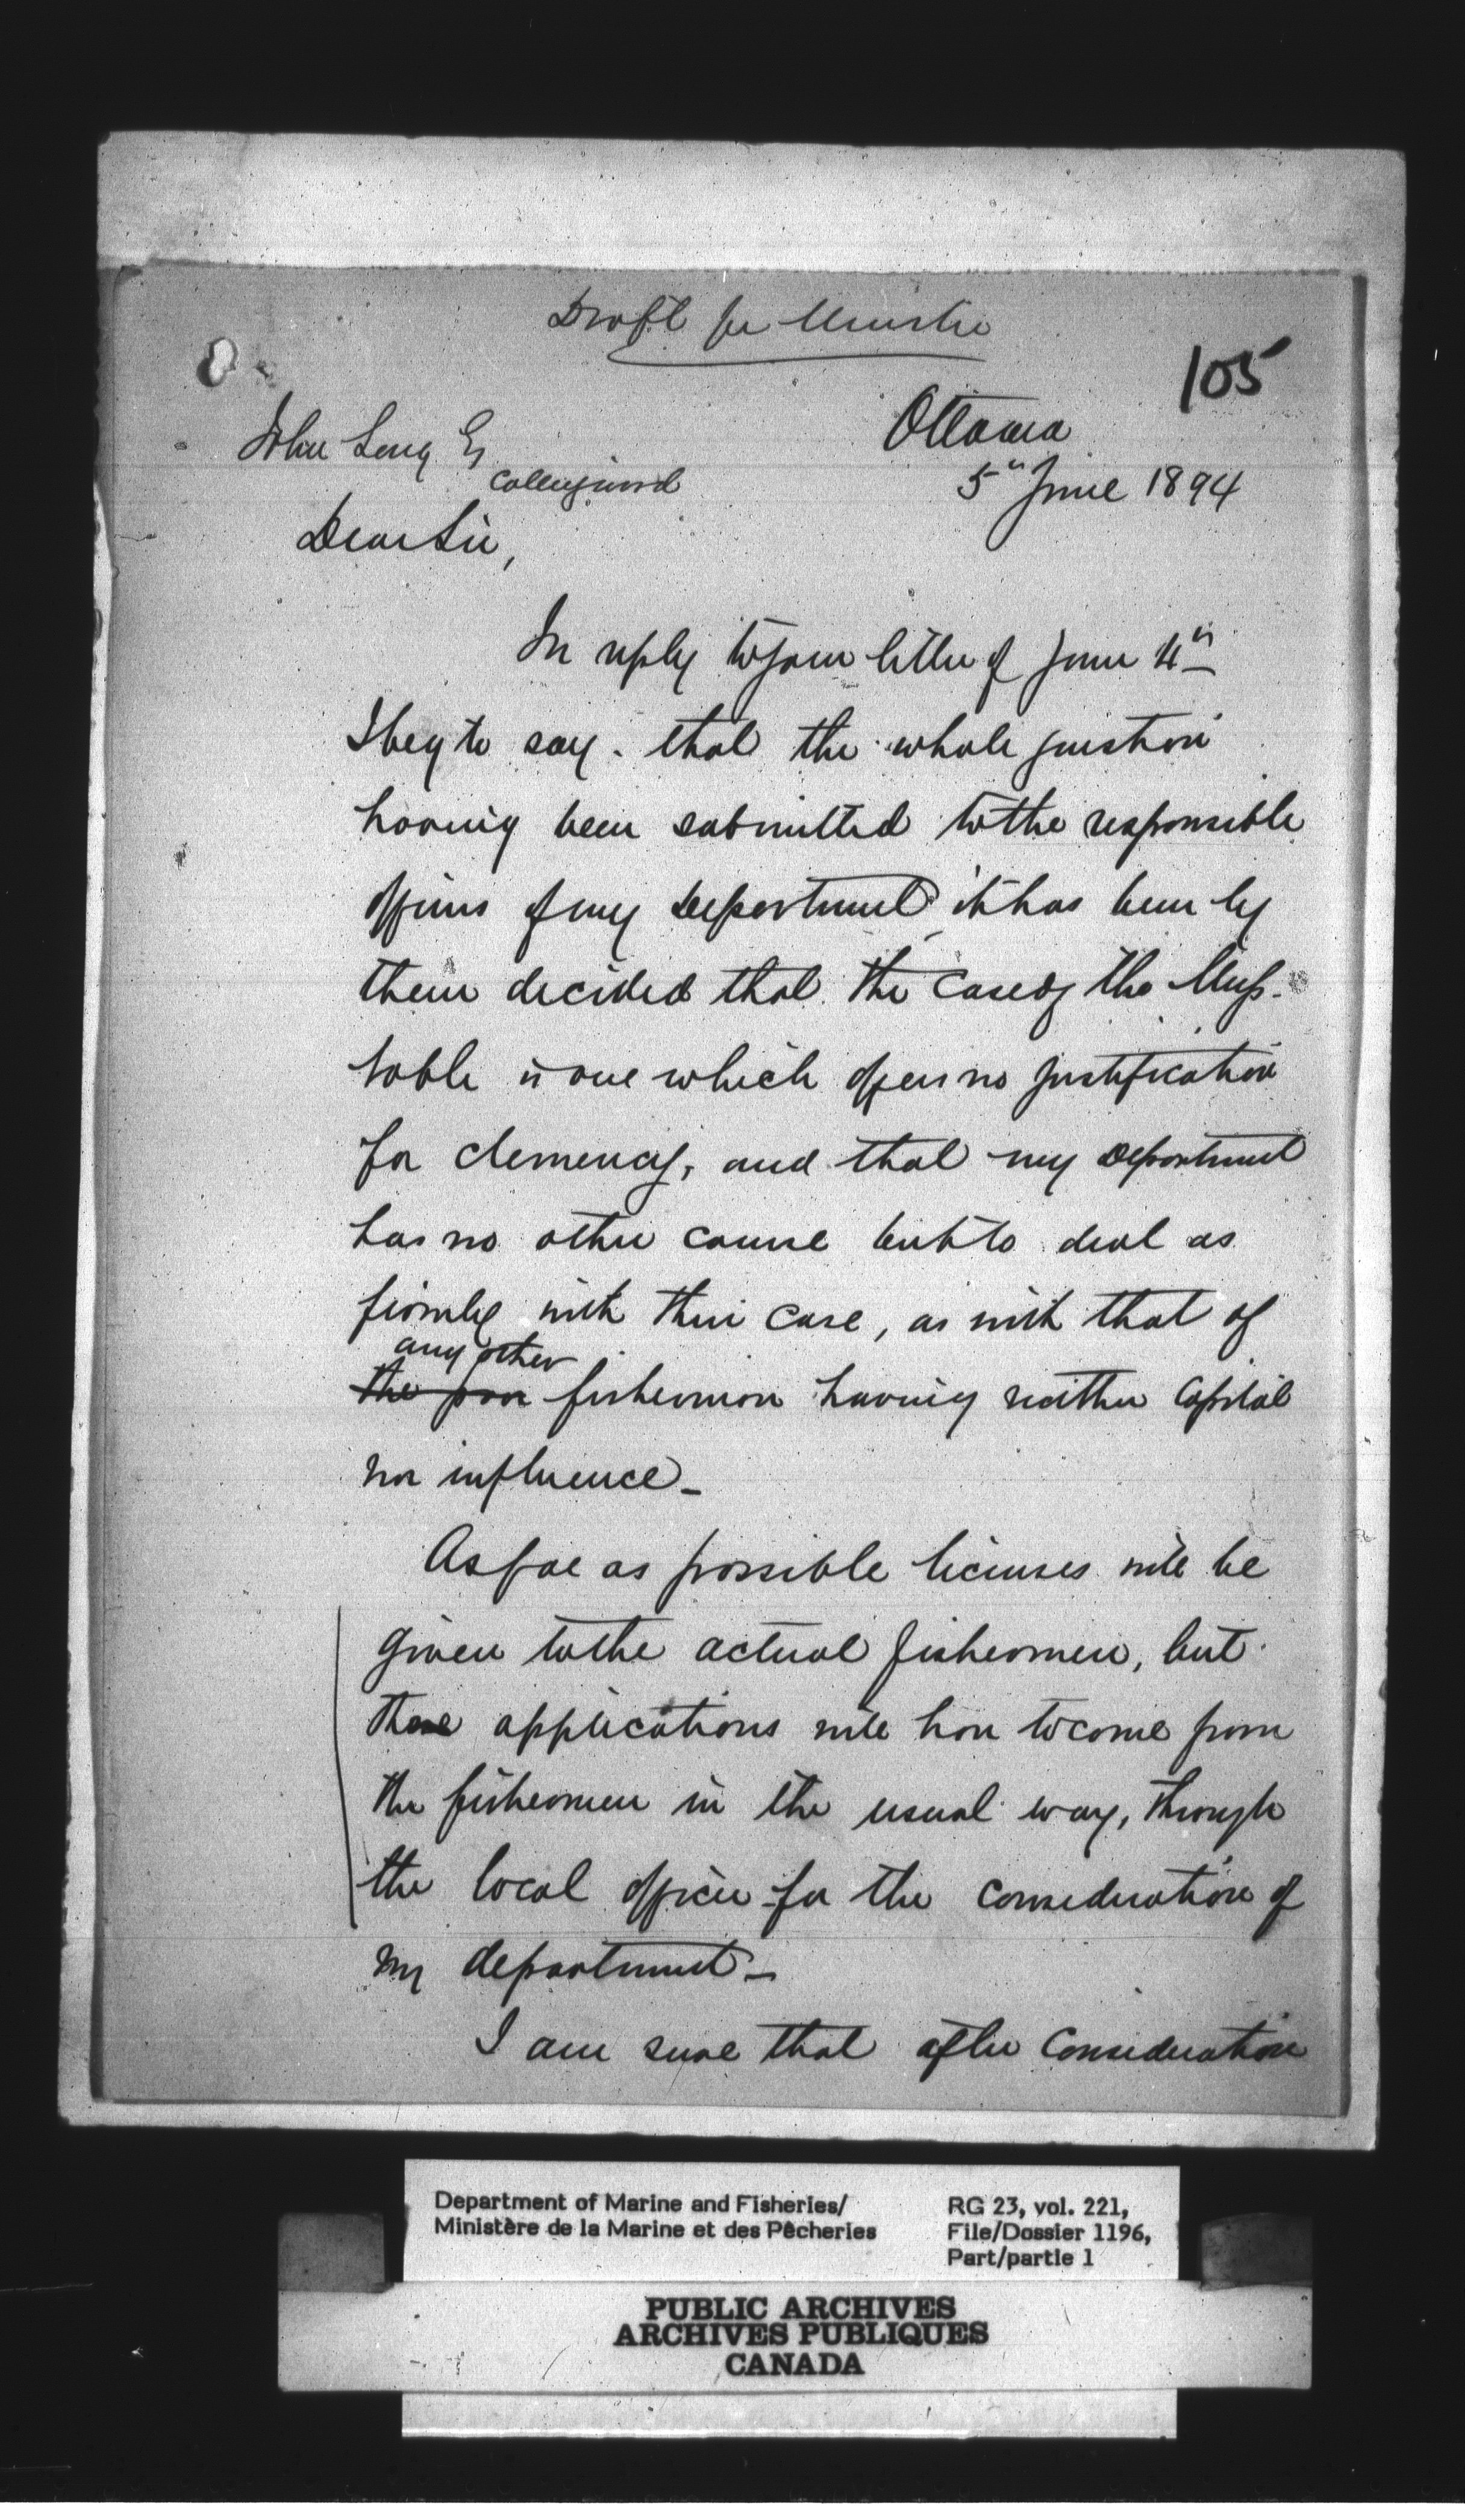 Draft for Minister
105
Ottawa
5th June 1894
John Long Esq
Collingwood
Dear Sir,
In reply to your letter of June 4th
I beg to say - that the whole question
having been submitted to the responsible
officers of my Department, it has been by
them decided that the case of the Messrs.
Noble is one which offers no justification
for clemency, and that my Department
has no other course but to deal as
firmly with their case, as with that of
any other
the poor fisherman having neither Capital
nor influence -
As far as possible licenses will be
given to the actual fishermen, but
these applications will have to come from
the fishermen in the usual way, through
the local officer for the consideration of
my department -
I am sure that after Consideration
Department of Marine and Fisheries/
Ministère de la Marine et des Pêcheries
RG 23, vol. 221,
File/Dossier 1196,
Part/partie 1
PUBLIC ARCHIVES
ARCHIVES PUBLIQUES
CANADA